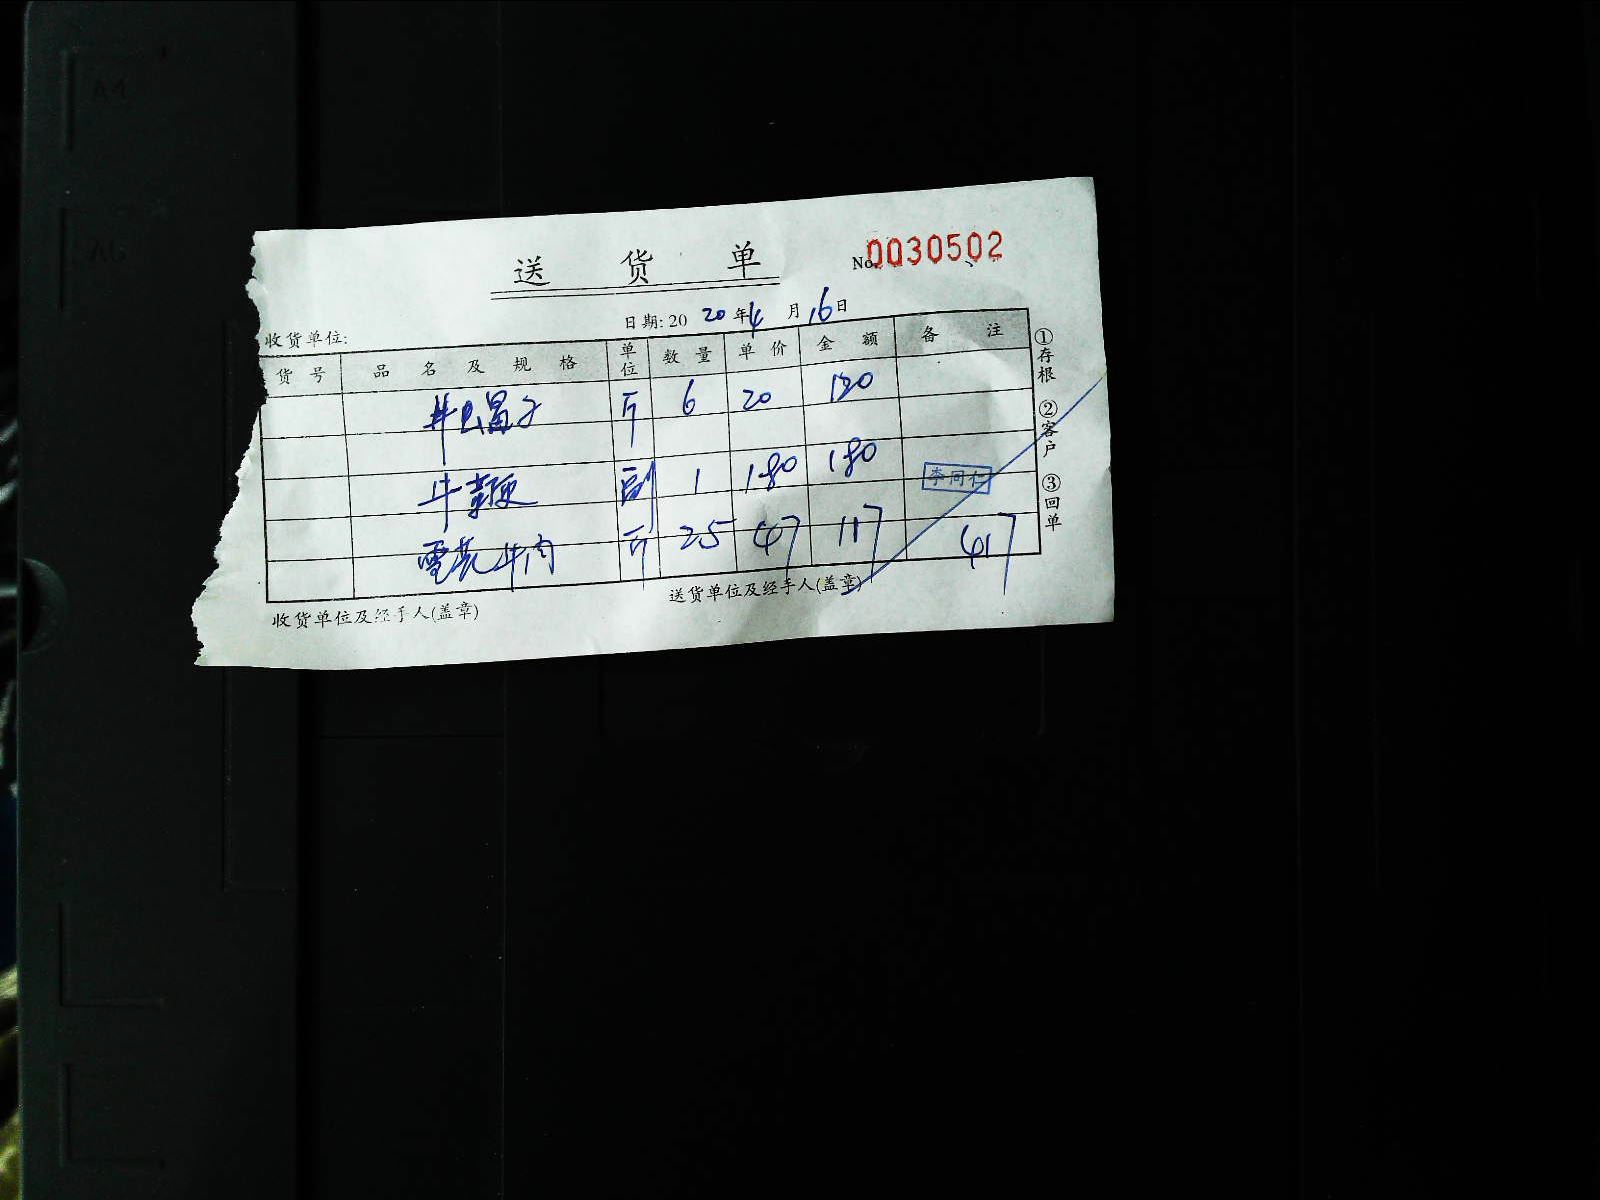 送 货 单
No.0030502
日期: 20 20 年 4 月 16 日
收货单位:
货 号 品 名 及 规 格 单位 数 量 单 价 金 额 备 注
斤 6 20 120
牛 副 1 180 180
李同仁
牛肉 斤 25 47 117 417
收货单位及经手人(盖章) 送货单位及经手人(盖章)
①存根 ②客户 ③回单